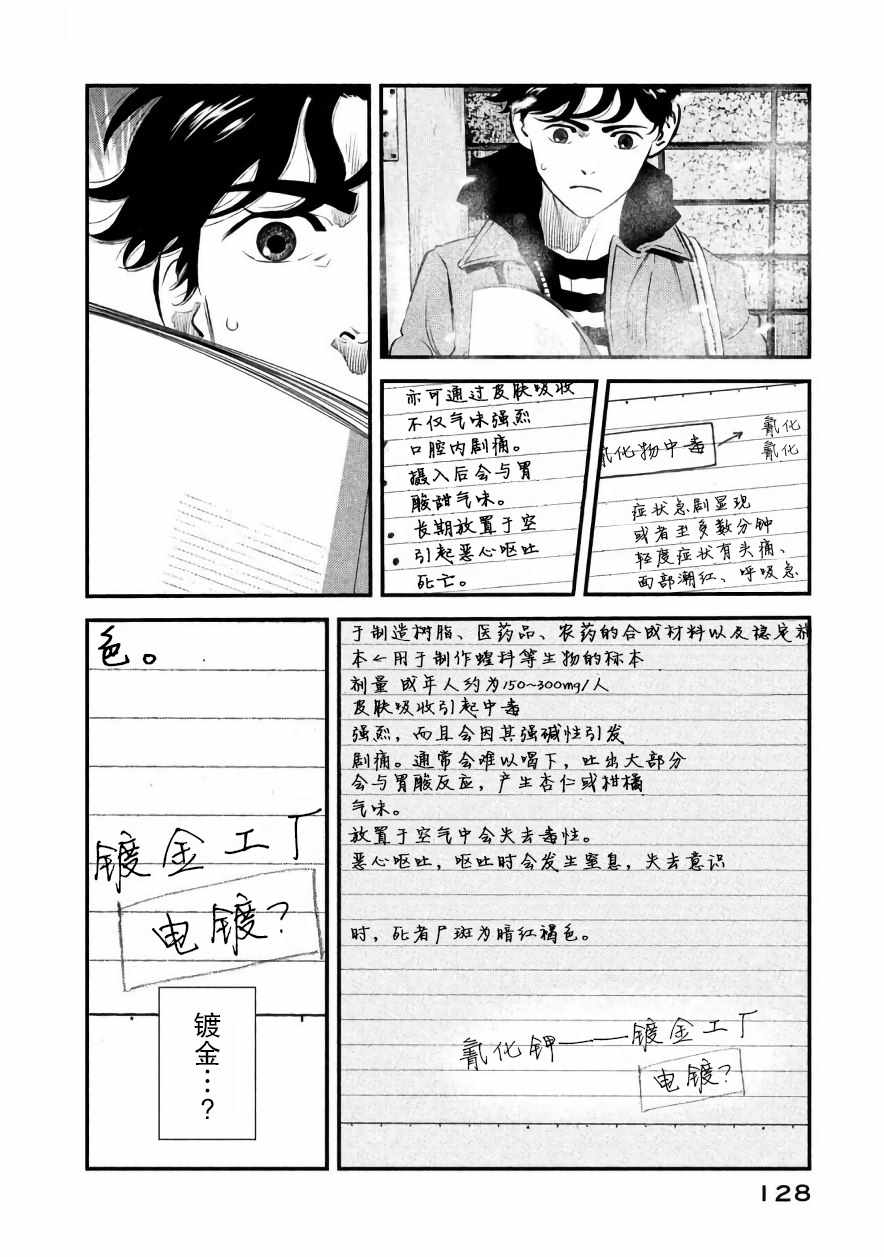 氰化物中毒
氰化
氰化
症状急剧显现
或者至多数分钟
轻度症状有头痛、
面部潮红、呼吸急
亦可通过皮肤吸收
不仅气味强烈
口腔内剧痛。
摄入后会与胃
酸甜气味。
长期放置于空
引起恶心呕吐
死亡。
于制造树脂、医药品、农药的合成材料以及稳定补
本←用于制作蝗科等生物的标本
剂量 成年人约为150~300mg/人
皮肤吸收引起中毒
强烈，而且会因其强碱性引发
剧痛。通常会难以咽下，吐出大部分
会与胃酸反应，产生杏仁或柑橘
气味。
放置于空气中会失去毒性。
恶心呕吐，呕吐时会发生窒息，失去意识
时，死者尸斑为暗红褐色。
氰化钾——镀金工厂
电镀?
色。
镀金工厂
电镀?
镀金…?
128